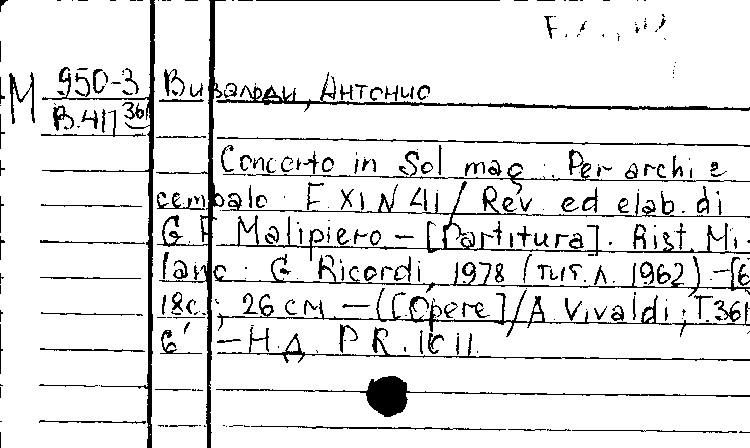 М 950-3 Вивальди, Антонио
В.417 361
Concerto in Sol mag. : Per archi e
cembalo : F XI N 41 / Rev ed elab. di
G F Malipiero — [Partitura]. Rist. Mi-
lano : G Ricordi, 1978 (тит. л. 1962) —[6]
18с. ; 26 см — ([Opere] / A Vivaldi ; T.361)
6' — Н.Д. P R.